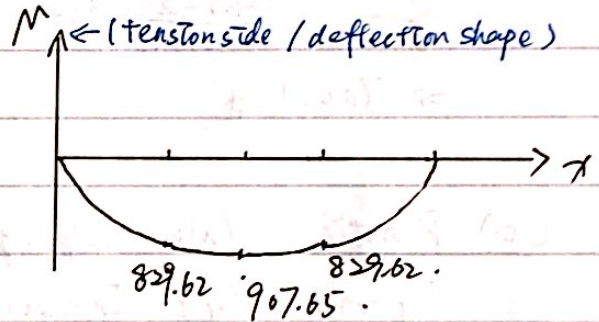 M ← (tension side / deflection shape)
x
829.62 . 907.65 . 829.62 .